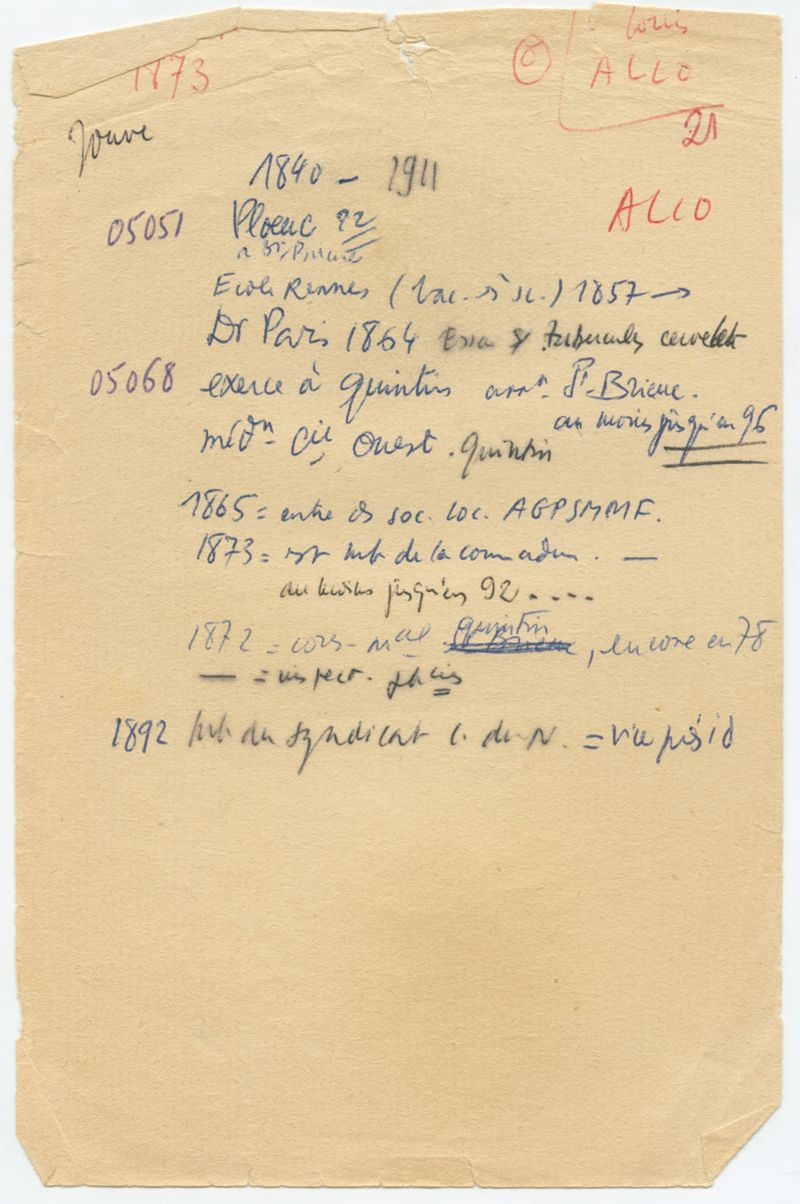 1873
Louis
ALLO
21
Jouve
1840 - 1911
ALLO
05051 Ploeuc 22
Ecole Rennes (bac. ès sc.) 1857 →
Dr Paris 1864 Essai s/ tubercules cervelet
05068 exerce à Quintin arrt St-Brieuc.
au moins jusqu'en 96
méd^n Cie Ouest. Quintin
1865 = entre ds soc. loc. AGPSMMF.
1873 = est mb de la com adm. —
au moins jusqu'en 92 ....
1872 = cons. mal Quintin, encore en 78
— = inspect. phcies
1892 mb du syndicat C. du N. = vice présid